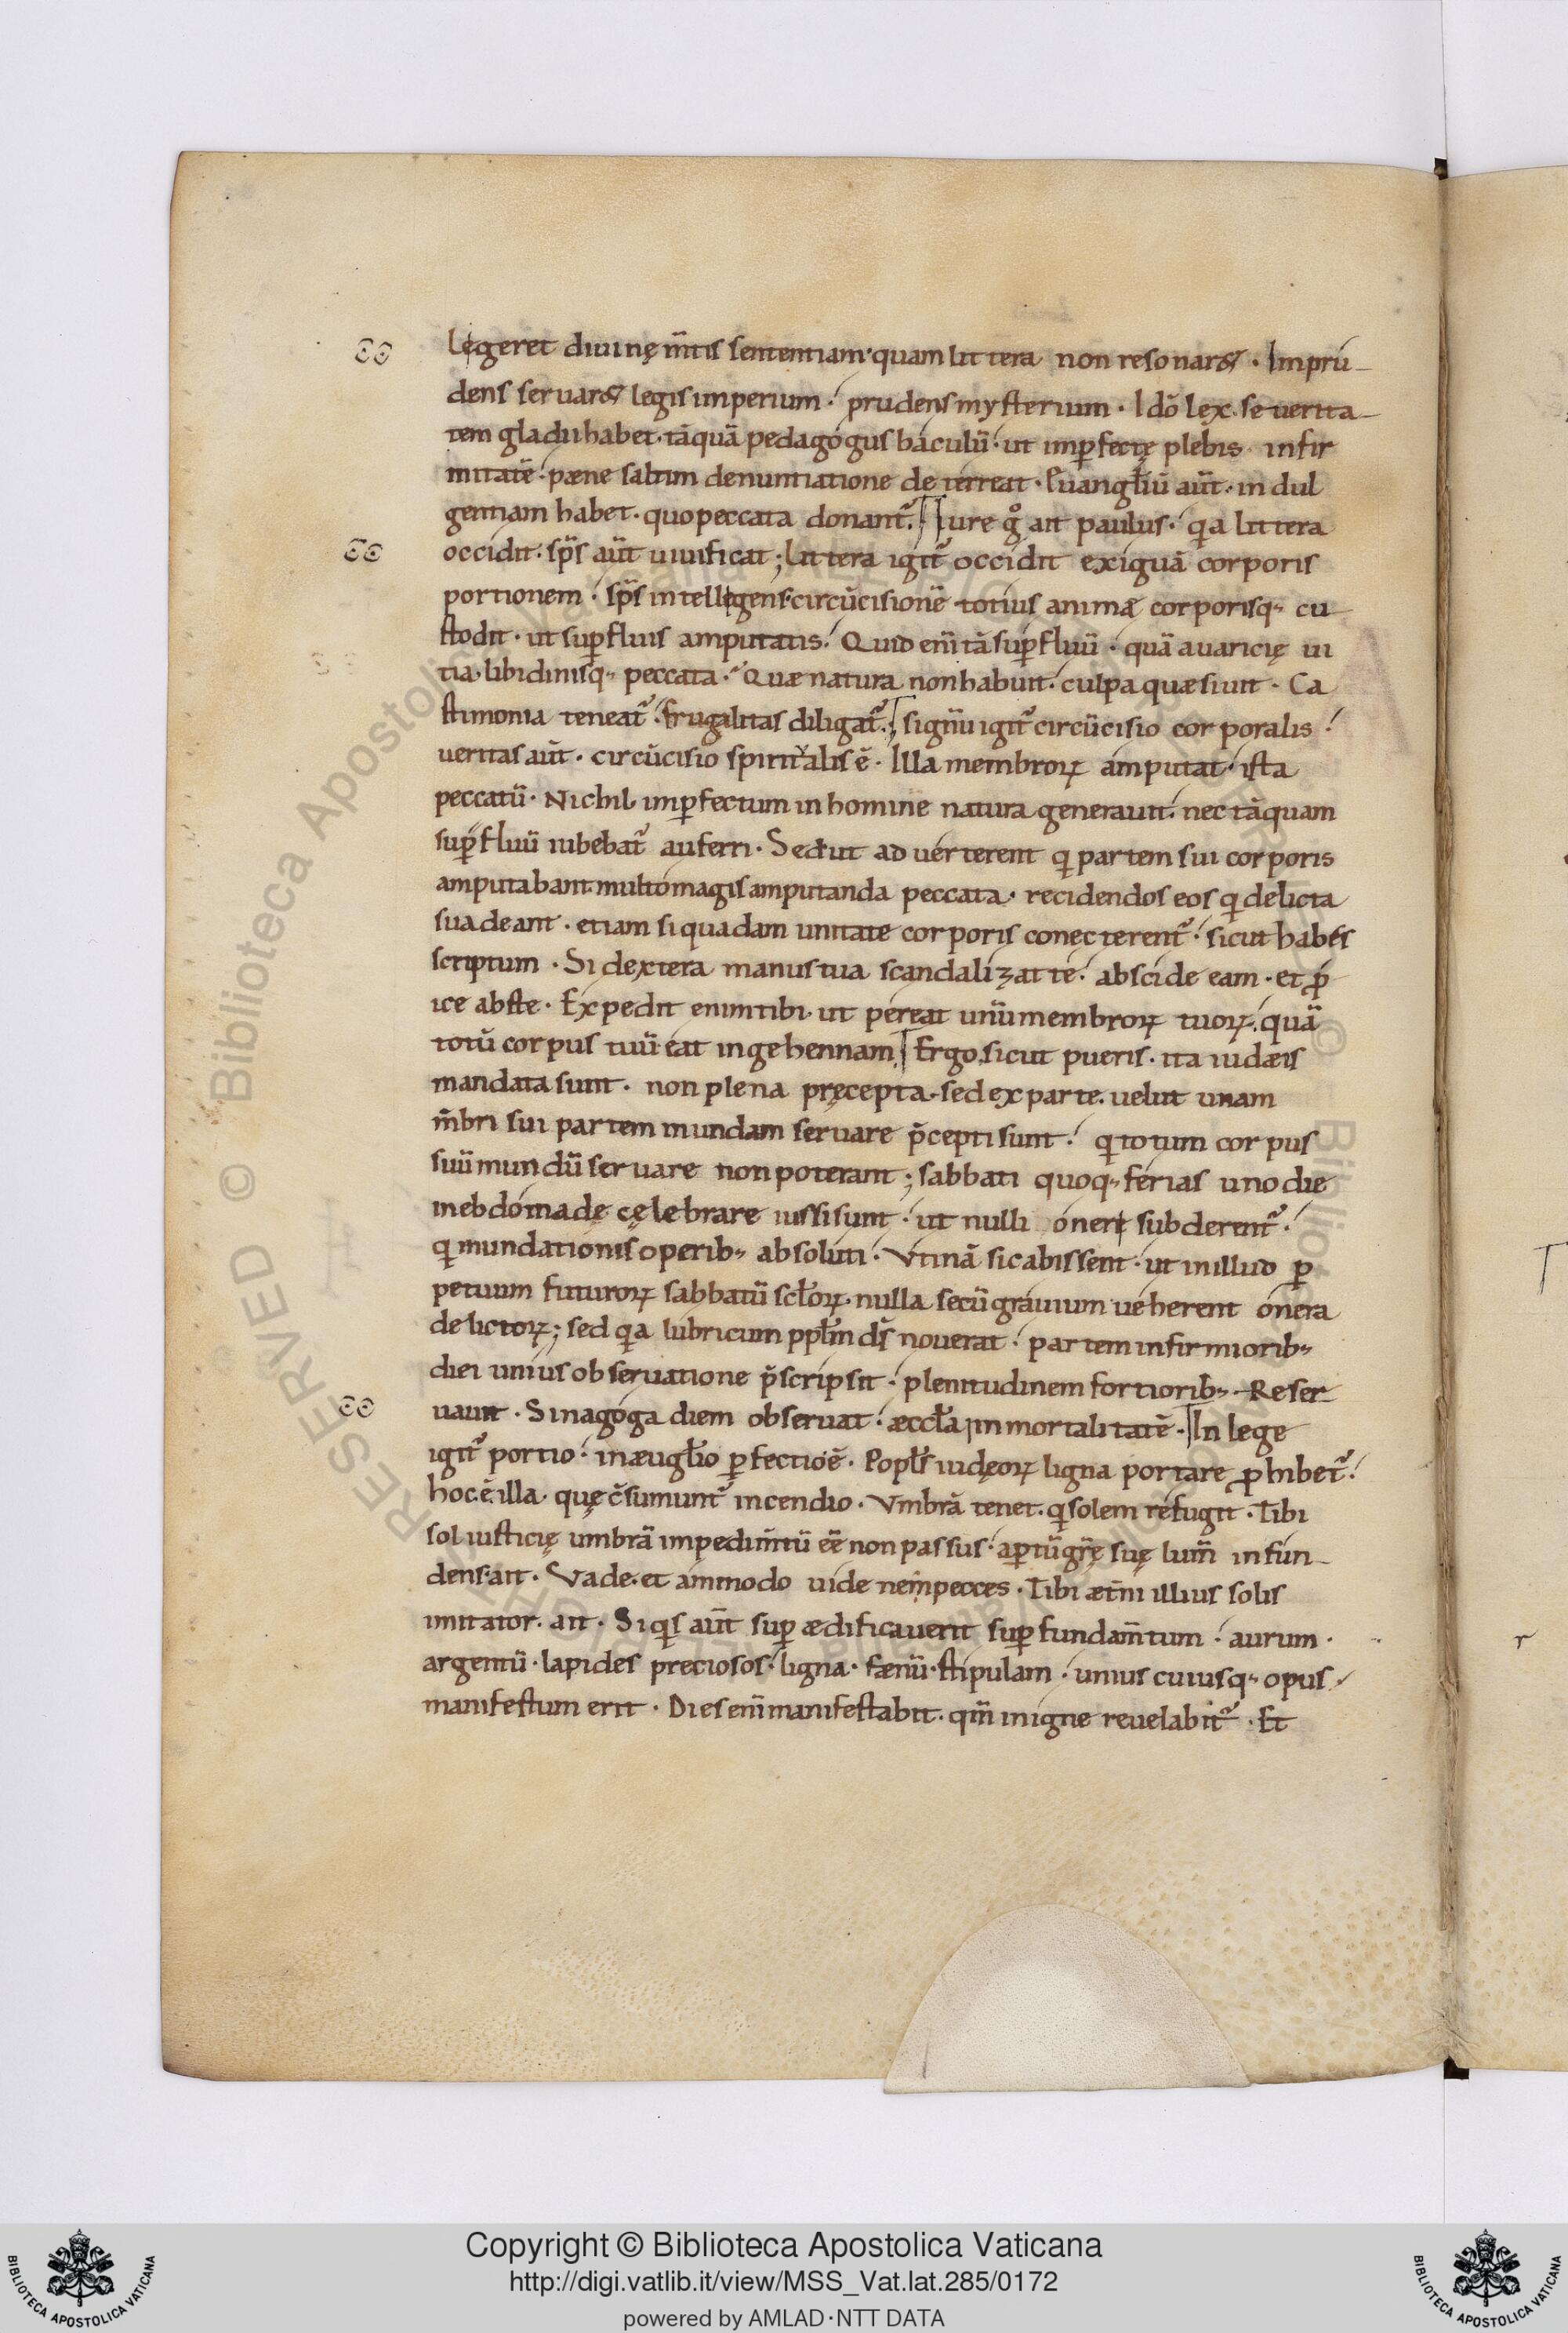 legeret diuinę m̄tis sententiam· quam littera non resonar& · Impru-
dens seruar& legis imperium· prudens mysterium · Idō lex. seuerita-
tem gladii habet· tāquā pedagogus baculū· ut imꝑfectę plebis infir
mitatē· pæne saltim denuntiatione deterreat· Euangłiū aūt· indul
gentiam habet· quo peccata donant᷑. Iure g° ait paulus· qa littera
occidit· sp̄s aūt uiuificat; Littera igit᷑ occidit exiguā corporis
portionem· sp̄s intellegens· circūcisionē totius animæ corporisq· cu
stodit· ut suꝑfluis amputatis. Quid enī tā suꝑfluū· quā auaricię ui
tia· libidinisq· peccata· Quæ natura non habuit· culpa quæsiuit · Ca
stimonia teneat᷑· frugalitas diligat᷑; signū igit᷑ circūcisio corporalis·
ueritas aūt· circūcisio spiritalis ē· Illa membroꝝ amputat· ista
peccatū· Nichil imꝑfectum in homine natura generauit· nec tāquam
suꝑfluū iubebat᷑ auferri· Sed ut aduerterent q partem sui corporis
amputabant· multo magis amputanda peccata· recidendos eos q delicta
suadeant· etiam si quadam unitate corporis conecterent᷑· sicut habes
scriptum · Si dextera manus tua scandalizat te· abscide eam· et ꝓ
ice abs te· Expedit enim tibi· ut pereat unū membroꝝ tuoꝝ· quā
totū corpus tuū eat in gehennam. Ergo sicut pueris· ita iudæis
mandata sunt· non plena pręcepta· sed ex parte· uelut unam
m̄bri sui partem mundam seruare p̄cepti sunt· q totum corpus
suū mundū seruare non poterant; sabbati quoq· ferias uno die
in ebdomade cęlebrare iussi sunt· ut nulli oneri subderent᷑·
q mundationis operib· absoluti· Vtinā sic abissent· ut in illud ꝑ
petuum futuroꝝ sabbatū scłoꝝ· nulla secū grauium ueherent onera
delictoꝝ; sed qa lubricum ppłm ds̄ nouerat· partem infirmiorib·
diei unius obseruatione p̄scripsit· plenitudinem fortiorib· Reser-
uauit · Sinagoga diem obseruat· æccła inmortalitatē· In lege
igit᷑ portio· in æuglio ꝑfectio ē· Popłs iudęoꝝ ligna portare ꝓhibet᷑·
hoc ē illa· quę c̄sumunt᷑ incendio· Vmbrā tenet· q solem refugit · Tibi
sol iusticię umbrā impedim̄tū eē non passus· aꝑtū gr̄ę suę lum̄ infun-
dens· ait· Vade· et ammodo uide ne pecces· Tibi æt̄ni illius solis
imitator· ait· Si qs aūt suꝑ ædificauerit suꝑ fundam̄tum· aurum·
argentū· lapides preciosos· ligna· fænū· stipulam· unius cuiusq· opus
manifestum erit · Dies enī manifestabit· qm̄ in igne reuelabit᷑ · Et
Copyright © Biblioteca Apostolica Vaticana
http://digi.vatlib.it/view/MSS_Vat.lat.285/0172
powered by AMLAD·NTT DATA
BIBLIOTECA APOSTOLICA VATICANA
BIBLIOTECA APOSTOLICA VATICANA